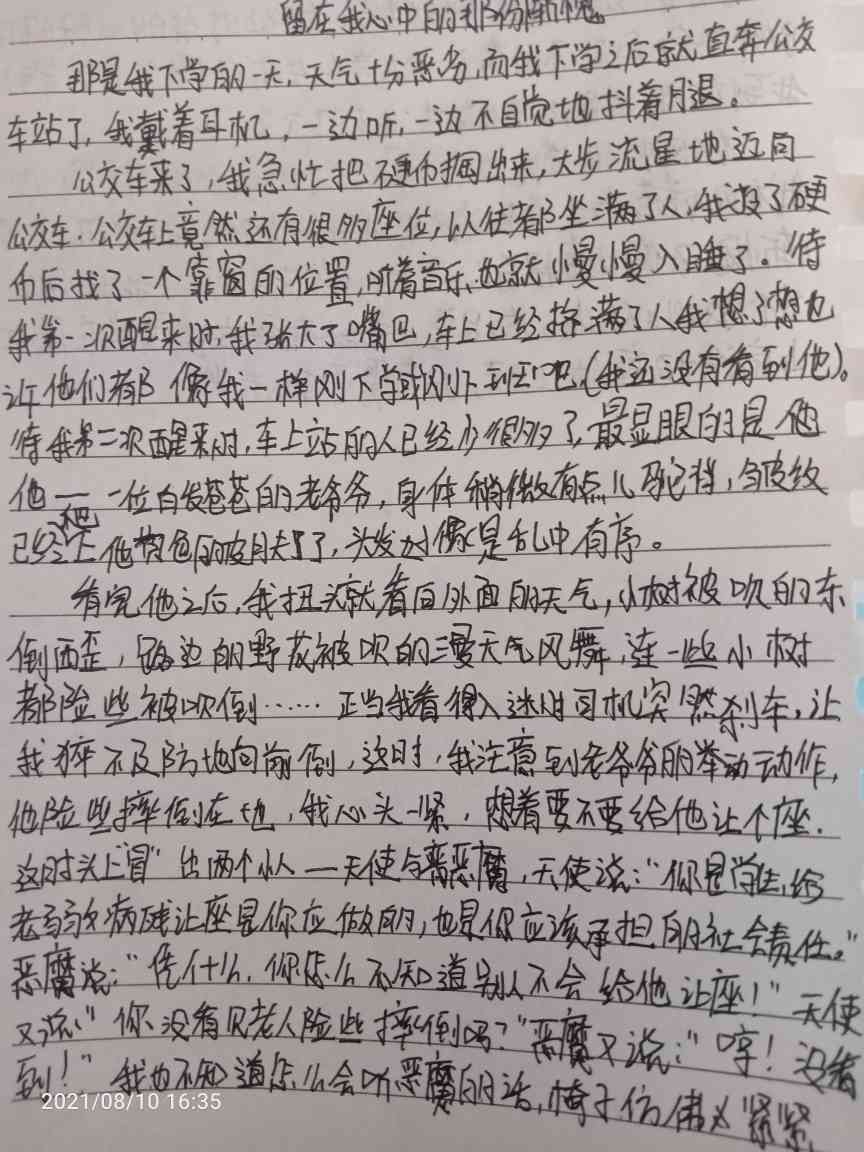 留在我心中的那份惭愧
那是我下学的一天,天气十分恶劣,而我下学之后就直奔公交
车站了,我戴着耳机,一边听,一边不自觉地抖着腿。
公交车来了,我急忙把硬币掏出来,大步流星地迈向
公交车.公交车上竟然还有很多座位,以往都坐满了人,我投了硬
币后找了一个靠窗的位置,听着音乐,也就慢慢入睡了。待
我第一次醒来时,我张大了嘴巴,车上已经挤满了人我想了想也
许他们都像我一样刚下学或刚下班吧(我还没有看到他)。
待我第二次醒来时,车上站的人已经少很多了,最显眼的是他
他——一位白发苍苍的老爷爷,身体稍微有点儿驼背,皱纹
已经爬上他的皮肤了,头发好像是乱中有序。
看完他之后,我扭头就看向外面的天气,小树被吹的东
倒西歪,路边的野花被吹的漫天飞舞,连一些小树
都险些被吹倒……正当我看得入迷时司机突然刹车,让
我猝不及防地向前倒,这时,我注意到老爷爷的举动动作,
他险些摔倒在地,我心头一紧,想着要不要给他让个座.
这时头上"冒"出两个小人—天使与恶魔,天使说:"你是学生,给
老弱病残让座是你应做的,也是你应该承担的社会责任。"
恶魔说:"凭什么,你怎么不知道别人不会给他让座!"天使
又说:"你没看见老人险些摔倒吗?"恶魔又说:"哼!没看
到!"我也不知道怎么会听恶魔的话,椅子仿佛"紧紧
2021/08/10 16:35